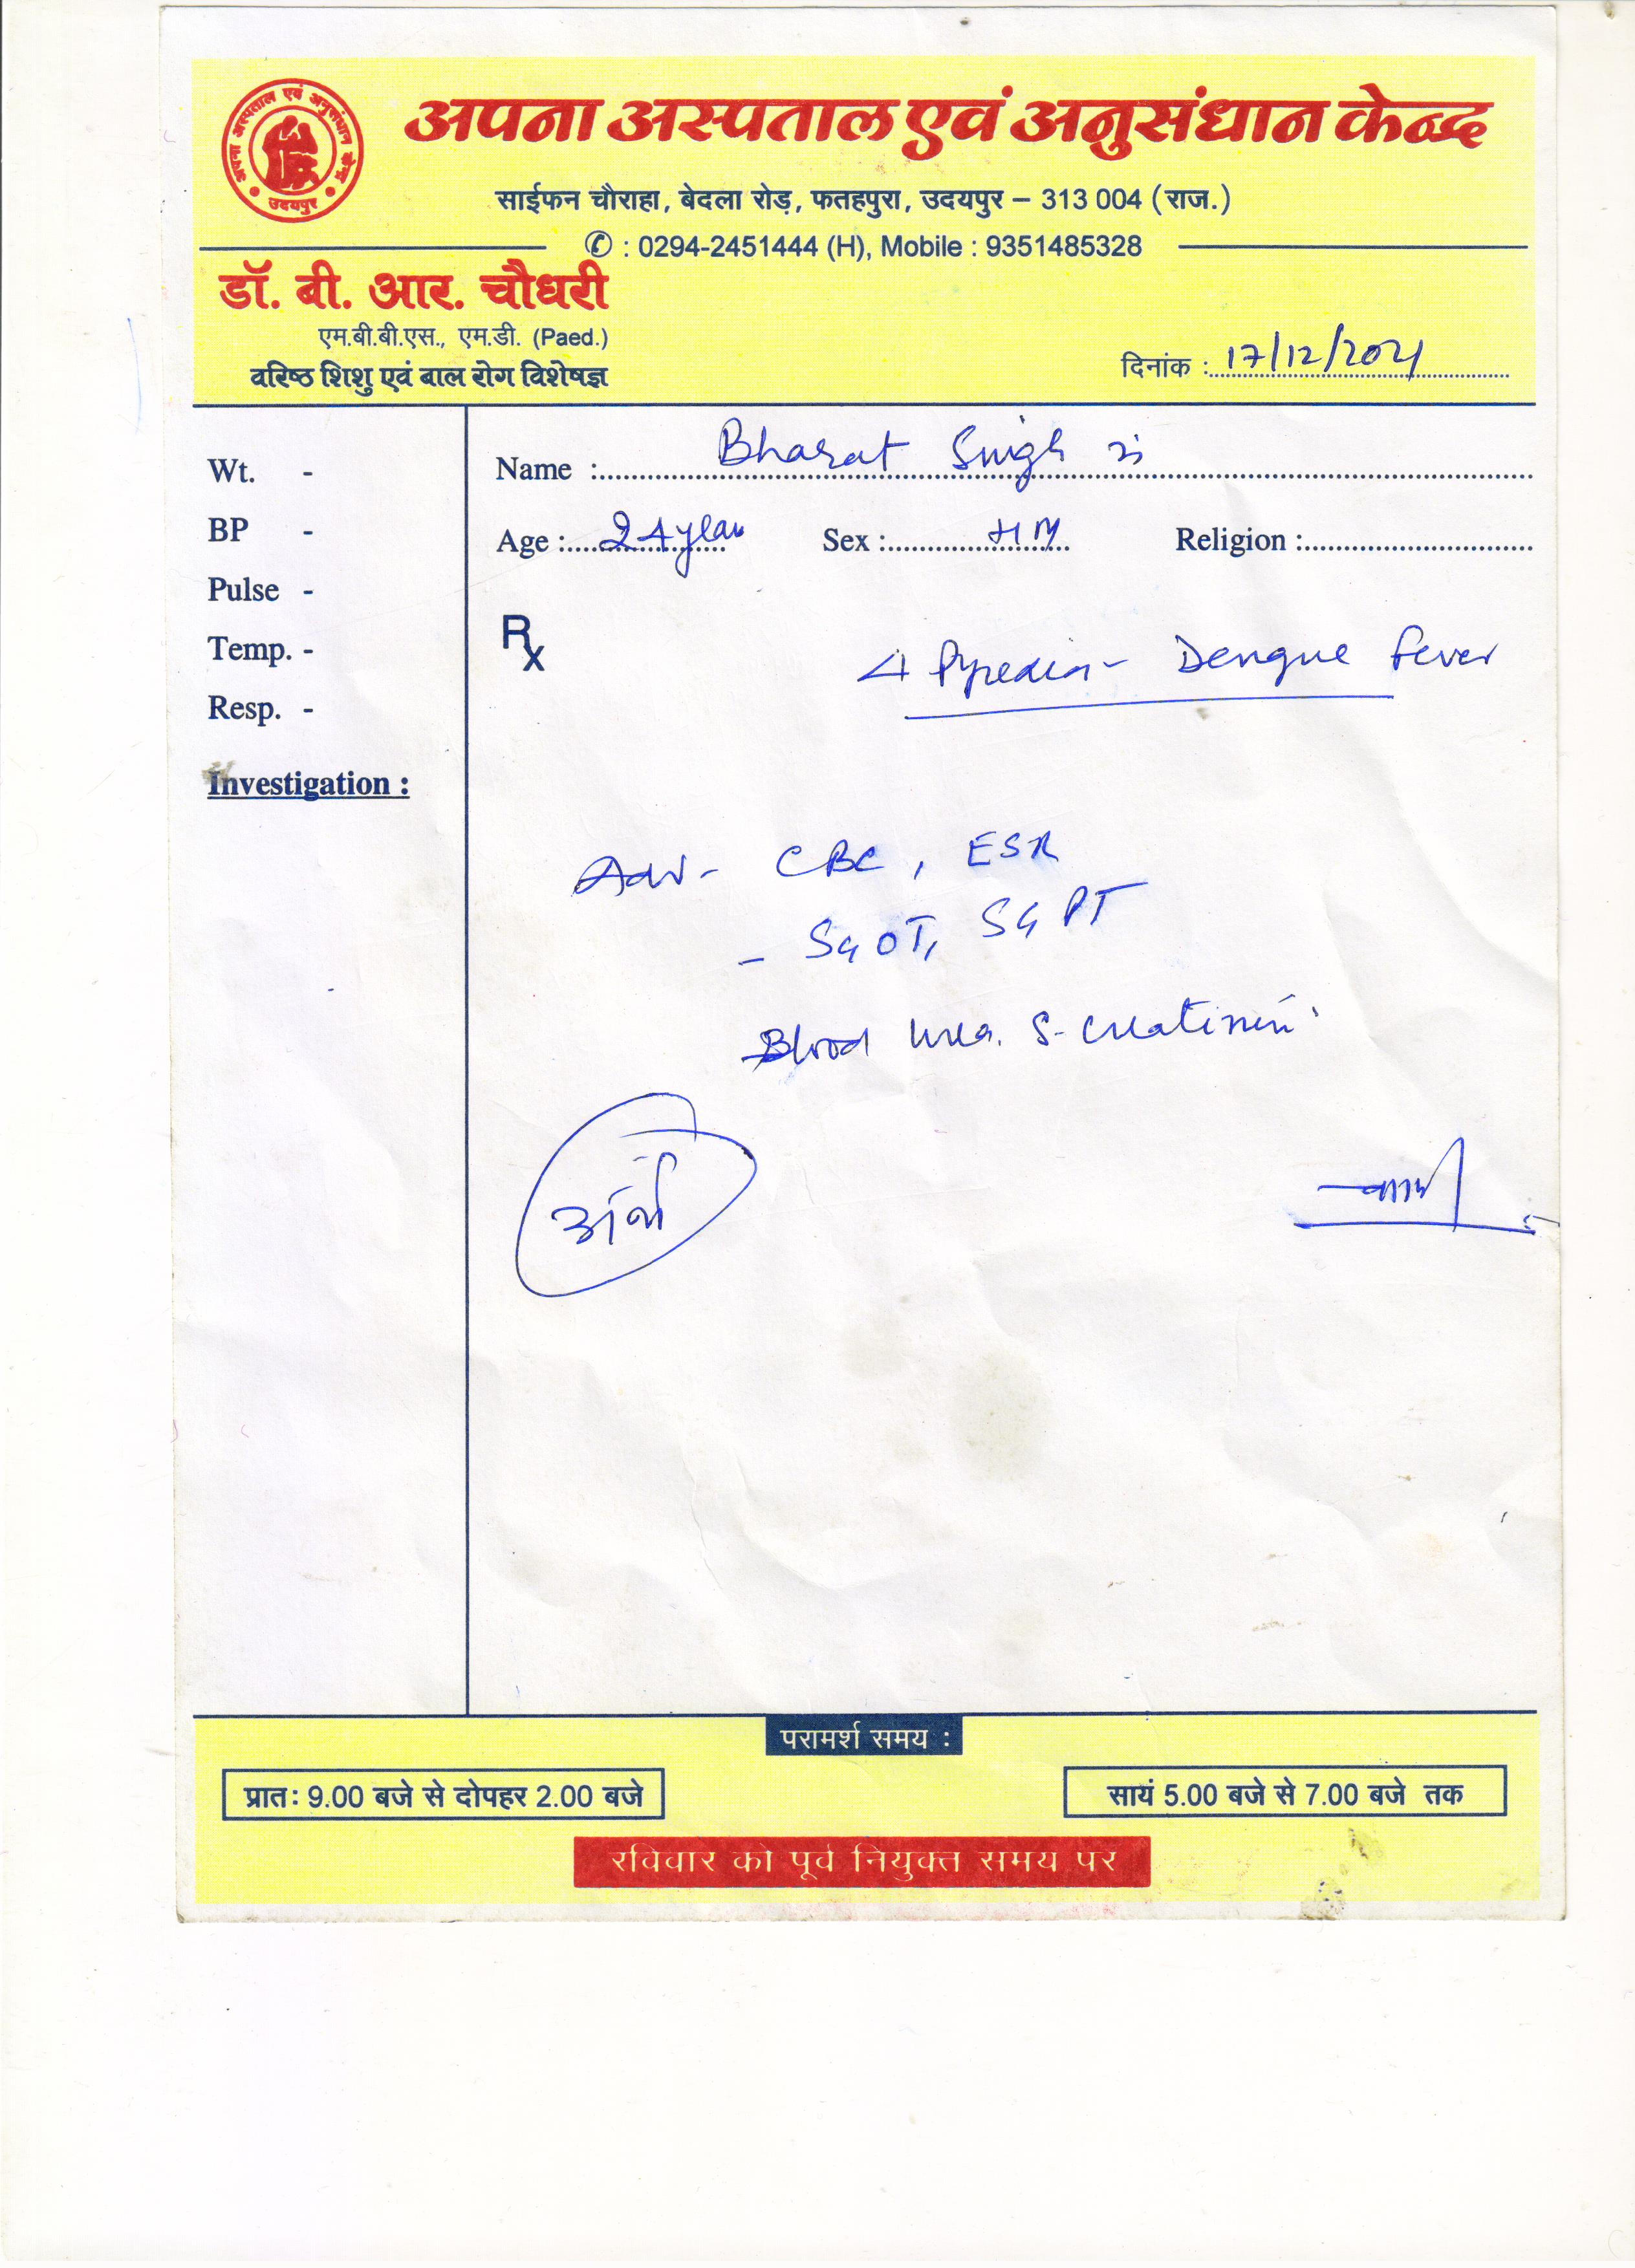 अपना अस्पताल एवं अनुसंधान केन्द्र
अपना अस्पताल एवं अनुसंधान केन्द्र
उदयपुर
साईफन चौराहा, बेदला रोड़, फतहपुरा, उदयपुर – 313 004 (राज.)
✆ : 0294-2451444 (H), Mobile : 9351485328
डॉ. बी. आर. चौधरी
एम.बी.बी.एस., एम.डी. (Paed.)
वरिष्ठ शिशु एवं बाल रोग विशेषज्ञ
दिनांक : 17/12/2021
Wt. -
BP -
Pulse -
Temp. -
Resp. -
Investigation :
Name : Bharat Singh
Age : 24 year Sex : M Religion :
Rx
Dengue fever
Adv - CBC, ESR
- SGOT, SGPT
Blood urea. S-creatinin
परामर्श समय :
प्रात: 9.00 बजे से दोपहर 2.00 बजे
सायं 5.00 बजे से 7.00 बजे तक
रविवार को पूर्व नियुक्त समय पर